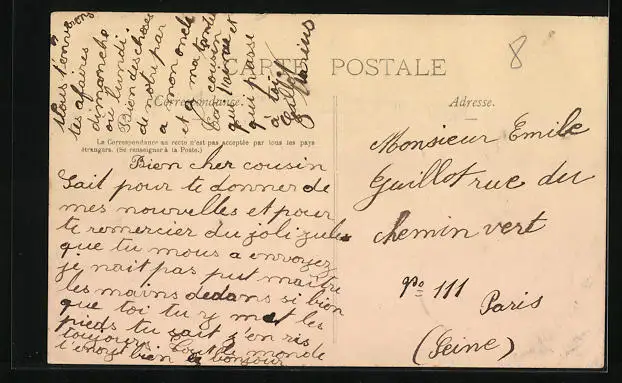 CARTE POSTALE
8
Correspondance.
Adresse.
La Correspondance au recto n'est pas acceptée par tous les pays
étrangers. (Se renseigner à la Poste.)
Bien cher cousin
Sait pour te donner de
mes nouvelles et pour
te remercier du joli
que tu nous a envoyez
je nait pas put maitre
les mains dedans si bien
que toi tu y met les
pieds tu sait j'en ris
toujours Tout le monde
t'envoy bien bonjour
Nous t'enverrons
tes afaires
dimanche
ou lundi.
Bien des choses
de notre part
a mon oncle
et a ma tante
Ton cousin
qui t'aime et
qui
a toi
Guillot
Monsieur Emile
Guillot rue du
chemin vert
no 111
Paris
(Seine)